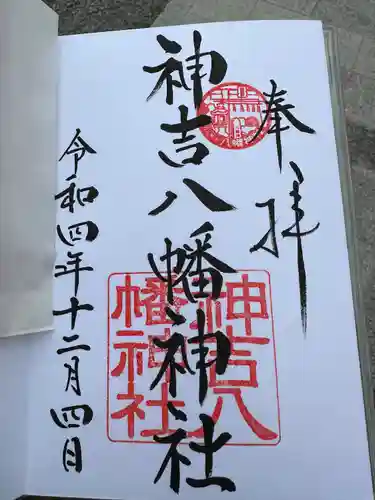 奉拝
神吉八幡神社
令和四年十二月四日
神吉八
幡神社